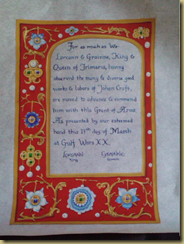 For as much as We
Lorcan & Graciene, King &
Queen of Trimaris, having
observed the many & diverse good
works & labors of Johari Craft,
are moved to advance & commend
him with this Grant of Arms
As presented by our esteemed
hand this 21st day of March
at Gulf Wars XX.
King
Queen